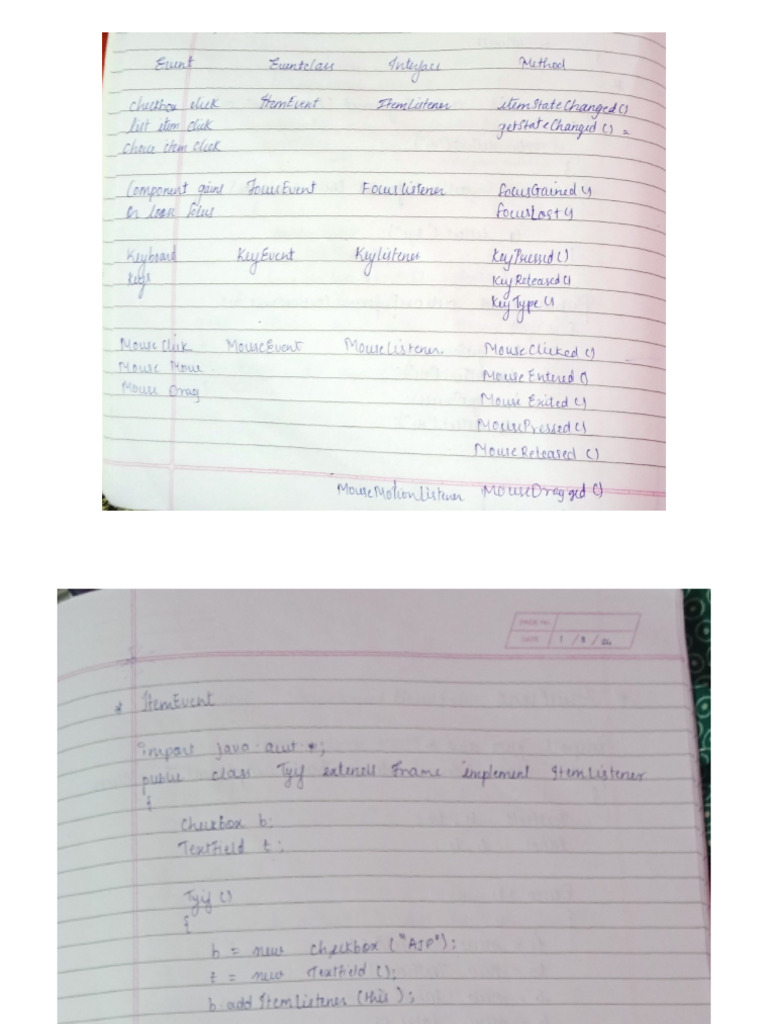 Event Eventclass Interface Method
Checkbox click ItemEvent ItemListener itemStateChanged()
list item click getStateChanged()
choice item click
Component gains FocusEvent FocusListener FocusGained()
or loose focus FocusLost()
Keyboard KeyEvent KeyListener KeyPressed()
keys KeyReleased()
KeyType()
Mouse Click MouseEvent MouseListener MouseClicked()
Mouse Move MouseEntered()
Mouse Drag Mouse Exited()
MousePressed()
MouseReleased ()
MouseMotionListener MouseDragged()
PAGE No.
DATE 1 / 3 /
* ItemEvent
import java.awt.*;
public class Tyif extends Frame implement ItemListener
{
Checkbox b;
TextField t;
Tyif ()
{
b = new Checkbox ("AJP");
t = new TextField ();
b.add ItemListener (this);